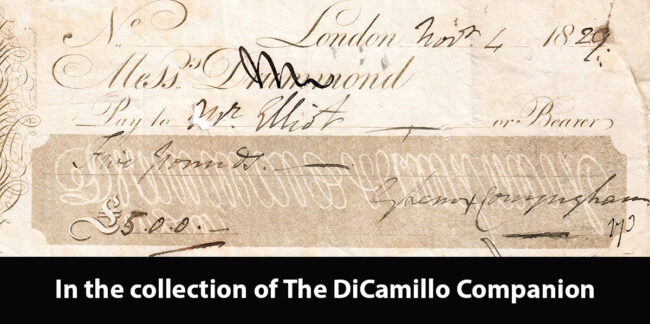 No. London Novr. 4 1829
Messrs. Drummond
Pay to Mr Elliot or Bearer
Five pounds.
£5.0.0.— Lenox Conyngham
In the collection of The DiCamillo Companion